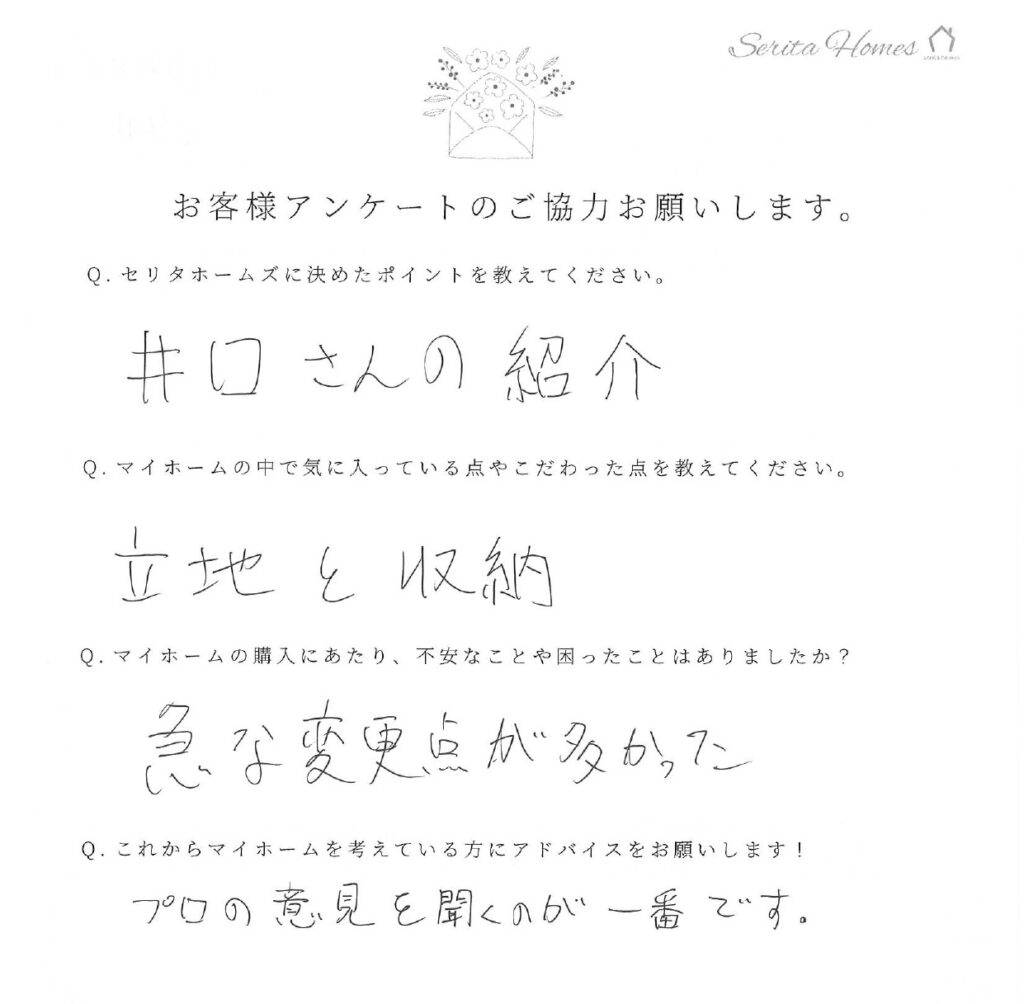 Serita Homes
お客様アンケートのご協力お願いします。
Q. セリタホームズに決めたポイントを教えてください。
井口さんの紹介
Q. マイホームの中で気に入っている点やこだわった点を教えてください。
立地と収納
Q. マイホームの購入にあたり、不安なことや困ったことはありましたか？
急な変更点が多かった
Q. これからマイホームを考えている方にアドバイスをお願いします！
プロの意見を聞くのが一番です。